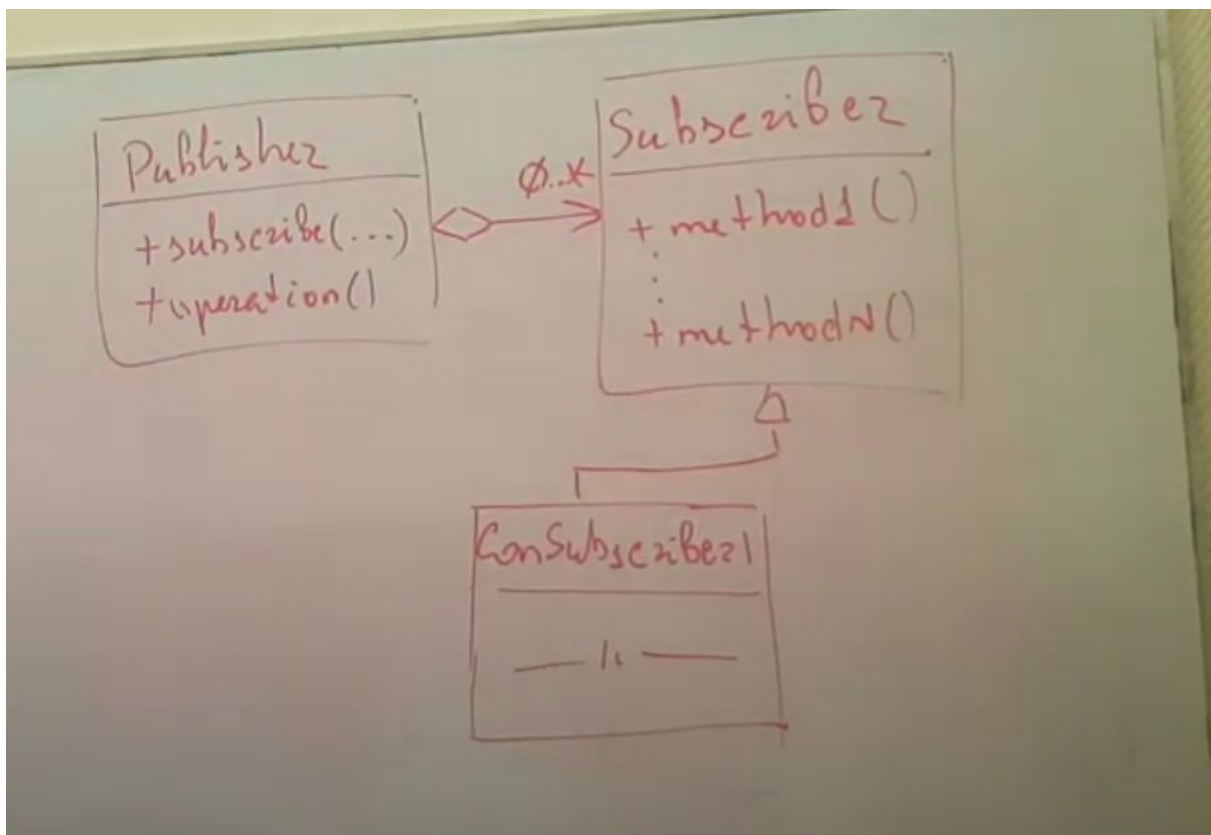 Publisher
+subscribe(...)
+operation()
0..*
Subscriber
+ method1()
+ methodN()
ConSubscriber1
— 11 —